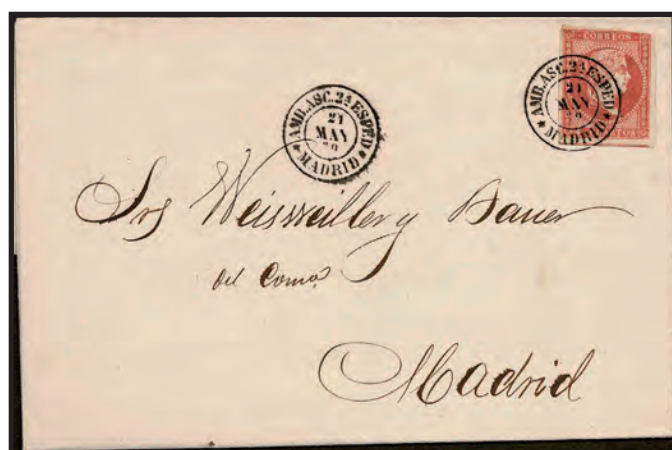 CORREOS
AMB.ASC.2ª ESPED
21
MAY
MADRID
AMB.ASC.2ª ESPED
21
MAY
MADRID
Srs Weisweiller y Bauer
del Como
Madrid